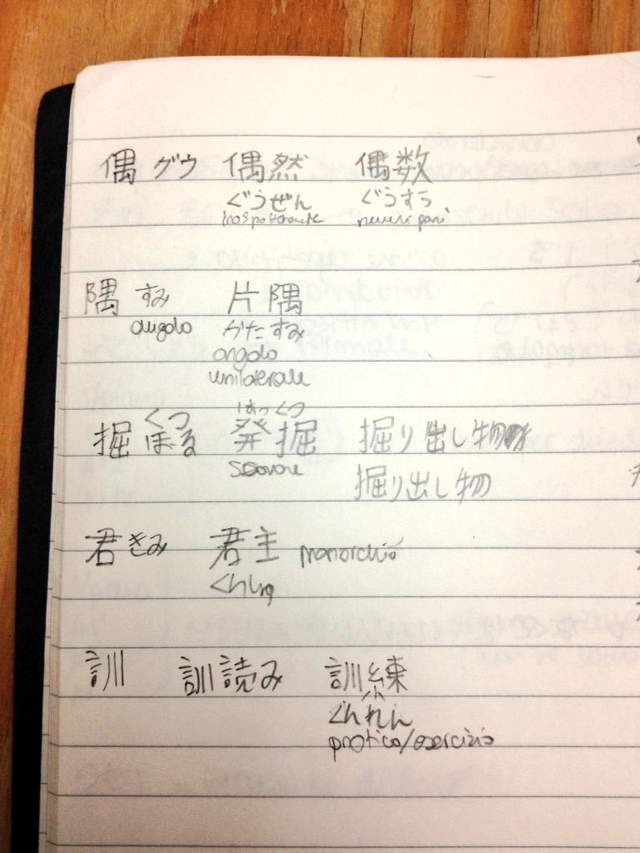 偶 グウ 偶然 偶数
ぐうぜん ぐうすう
numeri pari
隅 すみ 片隅
angolo かたすみ
angolo
unilaterale
くつ はっくつ
掘 ほる 発掘 掘り出し物
scavare 掘り出し物
君 きみ 君主 monarchia
くんしゅ
訓 訓読み 訓練
くんれん
pratica/esercizio